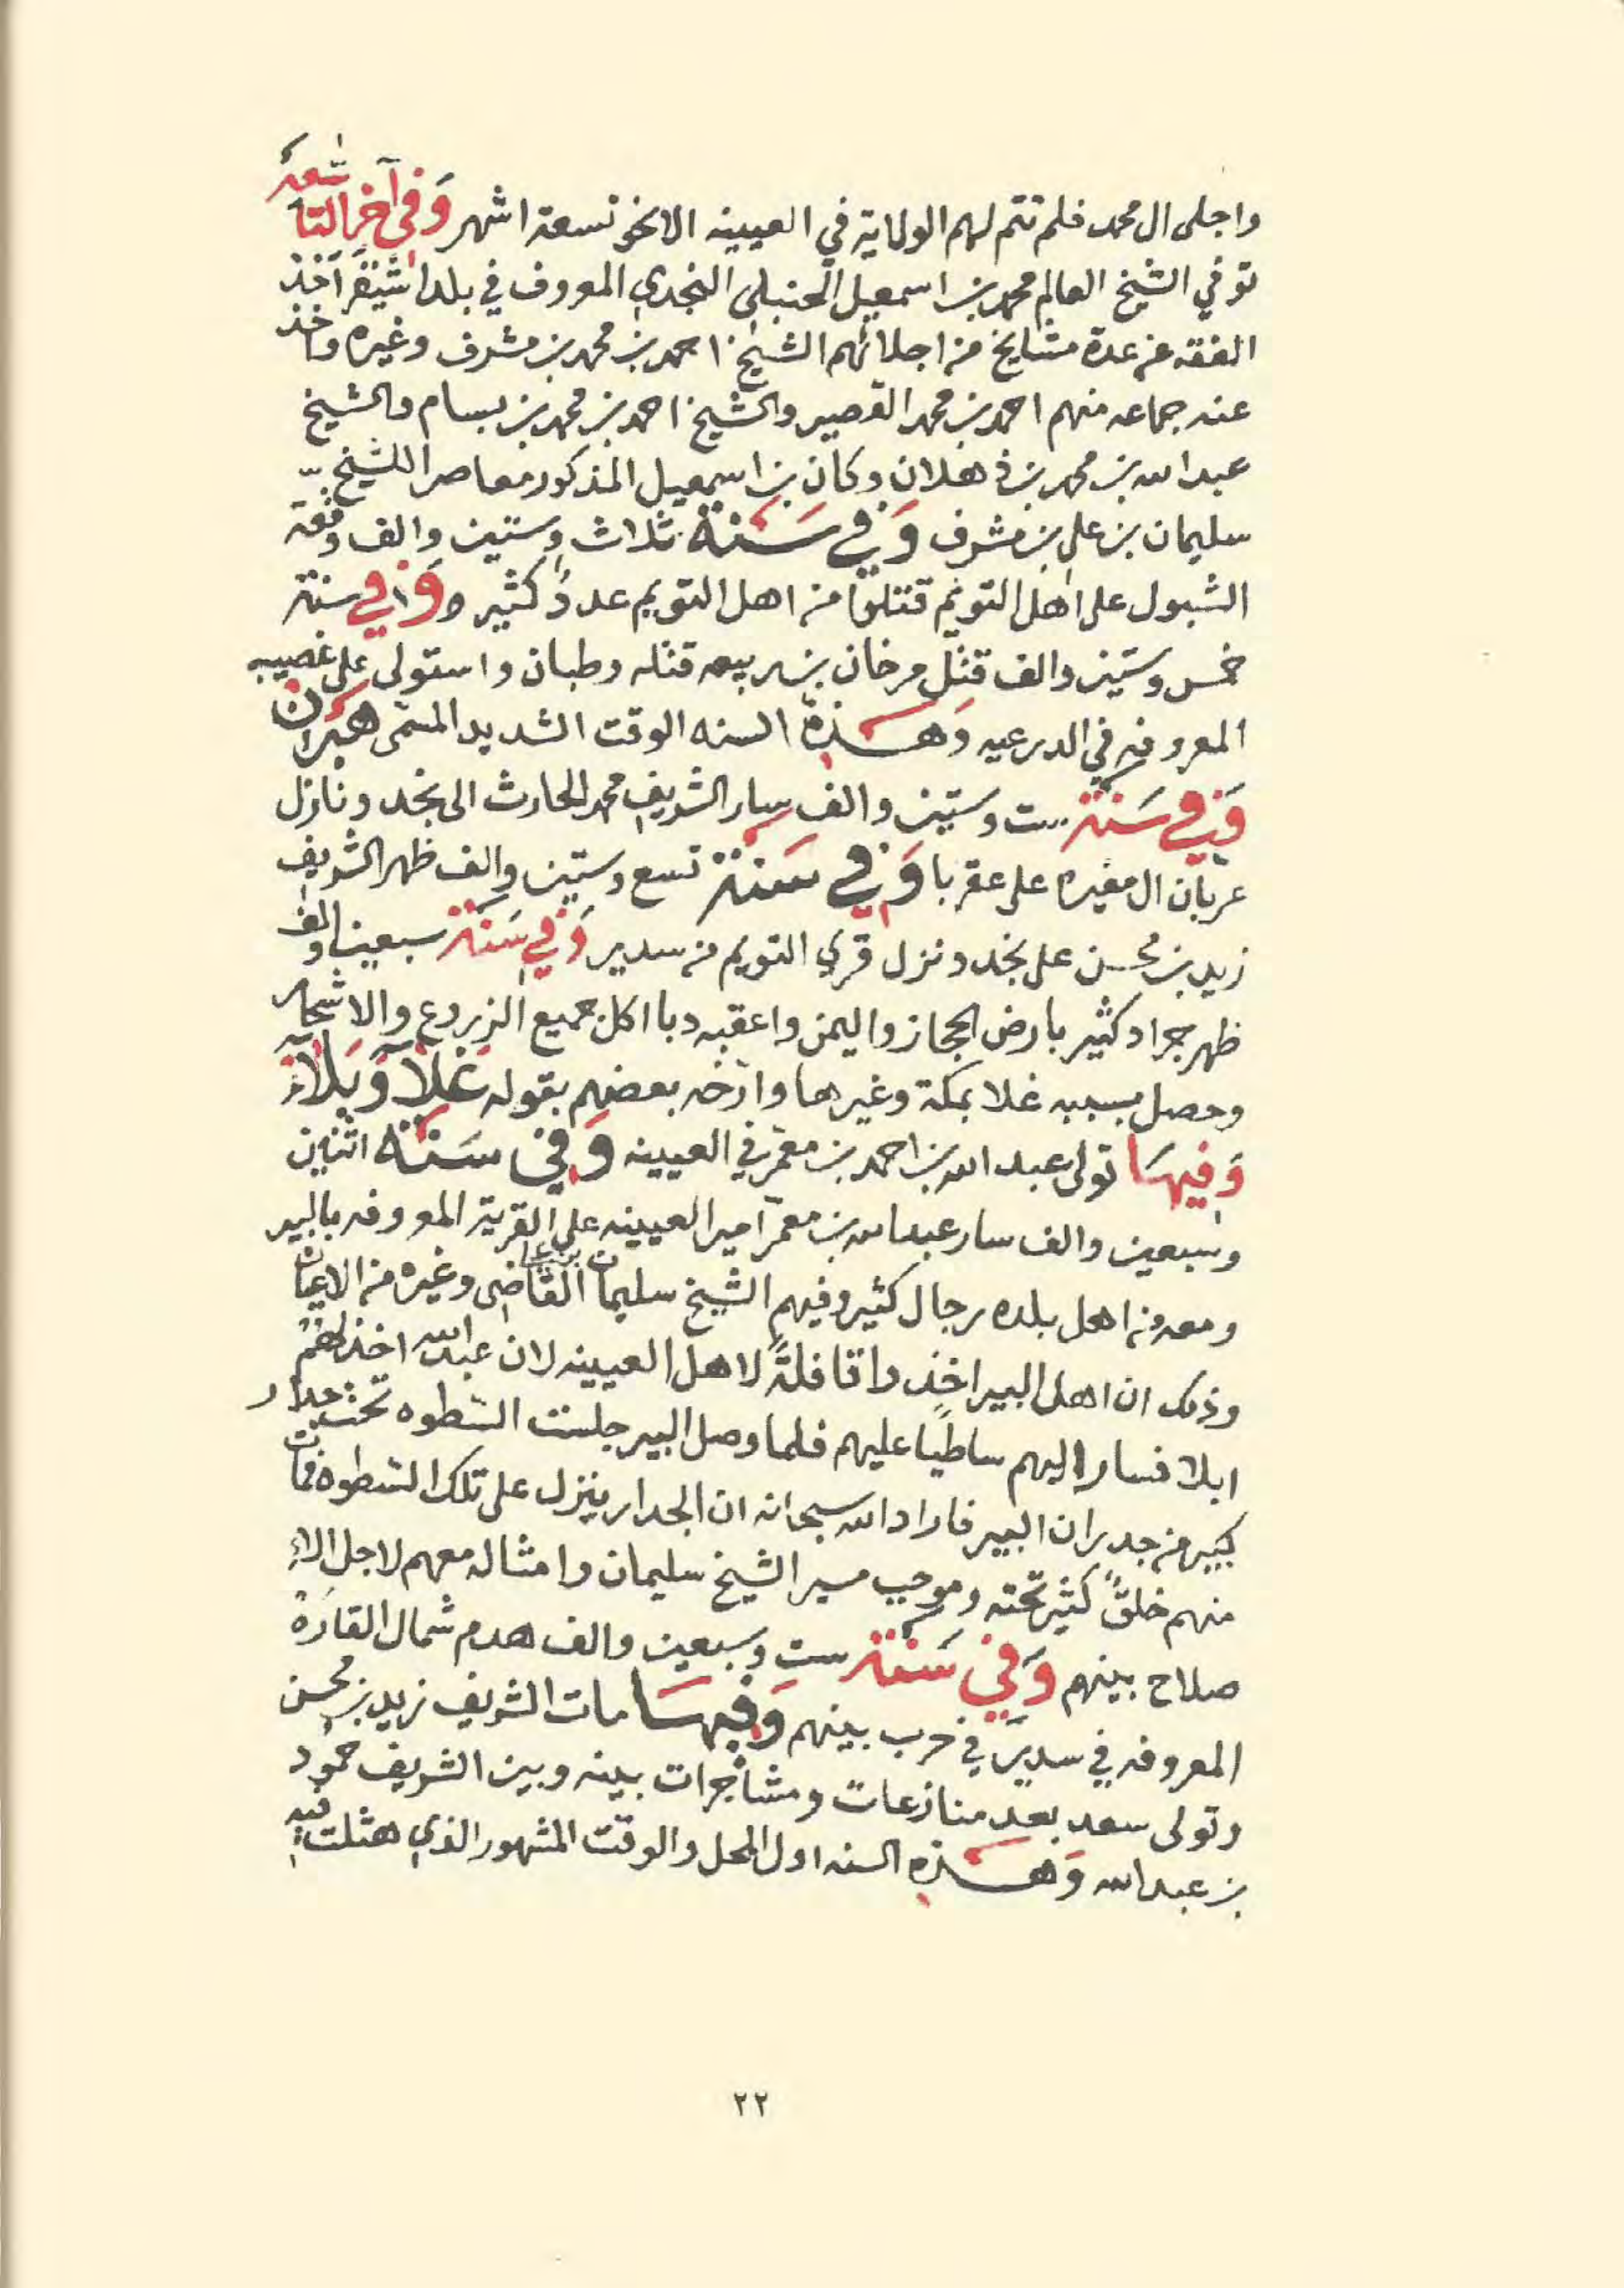 واجلى ال محمد فلم تتم لهم الولاية في العيينه الا نحو تسعة اشهر وَفي آخر التاسعة
توفي الشيخ العالم محمد بن اسمعيل الحنبلي النجدي المعروف في بلد اشيقر آخذ
الفقه عن عدة مشايخ من اجلائهم الشيخ احمد بن محمد بن مشرف وغيره واخذ
عنه جماعه منهم احمد بن محمد القصير والشيخ احمد بن محمد بن بسام والشيخ
عبد الله بن محمد بن ذهلان وكان بن اسمعيل المذكور معاصرا للشيخ
سليمان بن علي بن مشرف وَفي سَنَة ثلاث وستين والف وقعة
الشبول على اهل التويم قتلوا من اهل التويم عددً كثير وَفي سنة
خمس وستين والف قتل مرخان بن ربيعه قتله وطبان واستولى على غصيبه
المعروفه في الدرعيه وَهَذِهِ السنه الوقت الشديد المسمى هبران
وَفي سَنَة ست وستين والف سار الشريف محمد الحارث الى نجد ونازل
عربان ال مغيره على عقربا وَفي سَنة تسع وستين والف ظهر الشريف
زيد بن محسن على نجد ونزل قرى التويم من سدير وَفي سَنَة سبعين والف
ظهر جراد كثير بارض الحجاز واليمن واعقبه دبا اكل جميع الزروع والاشجار
وحصل بسببه غلا بمكة وغيرها وارّخه بعضهم بقوله غَلاَ وَبَلاَء
وَفيهَا تولى عبد الله بن احمد بن معمّر في العيينه وَفي سَنَة اثنين
وسبعين والف سار عبد الله بن معمّر امير العيينه على القرية المعروفه بالبير
ومعه من اهل بلده رجال كثير وفيهم الشيخ سليمان بن علي القاضى وغيره من الاعيان
وذلك ان اهل البير اخذوا قافلةً لاهل العيينه لان عبد الله اخذ لهم
ابلا فسار اليهم ساطيًا عليهم فلما وصل البير جلست السّطوه تحت جدار
كبير من جدران البير فاراد الله سبحانه ان الجدار ينزل على تلك السّطوه فمات
منهم خلقٌ كثير تحته وموجب مسير الشيخ سليمان وامثاله معهم لاجل الاء
صلاح بينهم وَفي سَنَة ست وسبعين والف هدم شمال القارَة
المعروفه في سدير في حرب بينهم وَفيهَا مات الشريف زيد بن محسن
وتولى سعد بعد منازعات ومشاجرات بينه وبين الشريف حمود
بن عبد الله وَهَذِه السنه اول المحل والوقت المشهور الذي هثلت فيه
٢٢